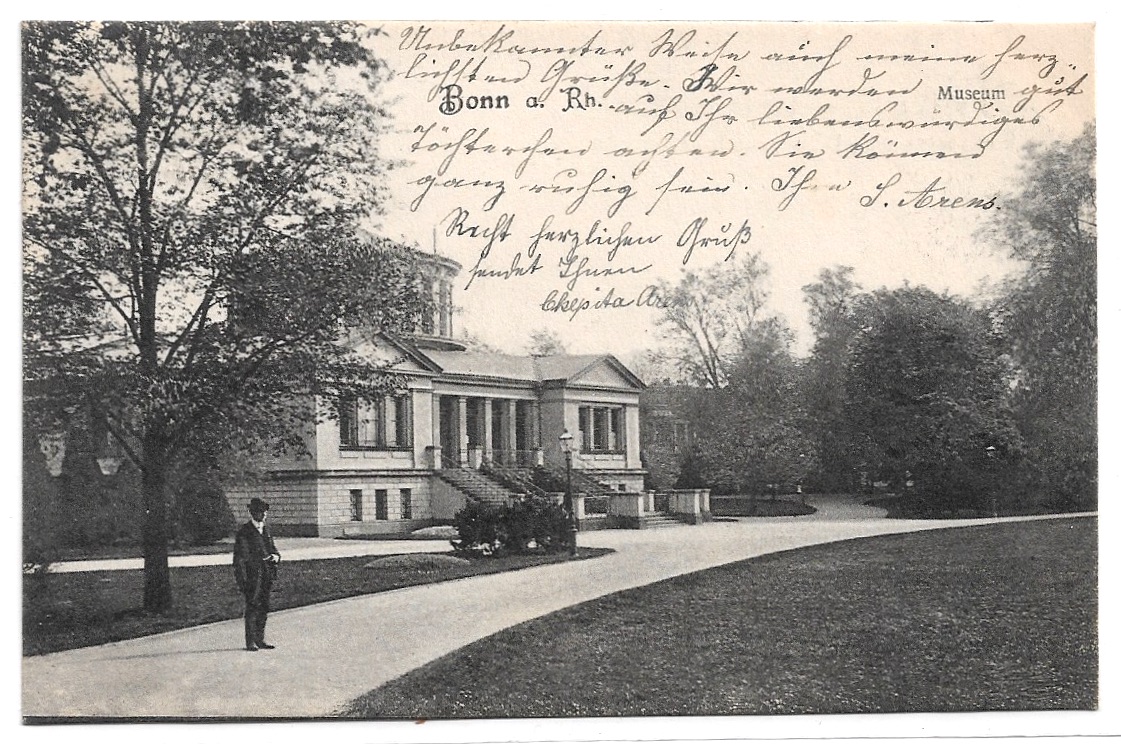 Unbekannter Weise auch meine herz-
lichsten Grüße. Wir werden gut
Bonn a. Rh. Museum
auf Ihr liebenswürdiges
Töchterchen achten. Sie können
ganz ruhig sein. Ihre S. Arens.
Recht herzlichen Gruß
sendet Ihnen
Chepita Arens